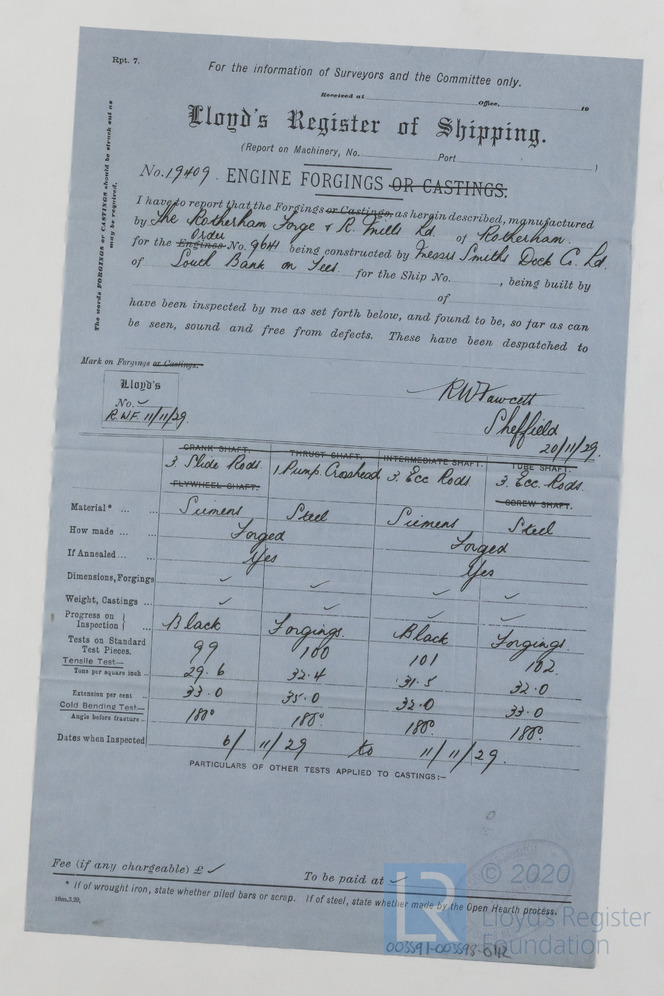 Rpt. 7.
For the information of Surveyors and the Committee only.
Received at Office, 19
Lloyd's Register of Shipping.
(Report on Machinery, No. Port )
The words FORGINGS or CASTINGS should be struck out as may be required.
No. 19409. ENGINE FORGINGS OR CASTINGS.
I have to report that the Forgings or Castings, as herein described, manufactured
by The Rotherham Forge & R. Mills Ld of Rotherham.
Order
for the Engines No. 9641 being constructed by Messrs Smiths Dock Co. Ld.
of South Bank on Tees. for the Ship No. , being built by
of
have been inspected by me as set forth below, and found to be, so far as can
be seen, sound and free from defects. These have been despatched to
Mark on Forgings or Castings.
Lloyd's
No. ✓
R.W.F. 11/11/29.
RWFawcett
Sheffield
20/11/29.
CRANK SHAFT. THRUST SHAFT. INTERMEDIATE SHAFT. TUBE SHAFT.
3. Slide Rods. 1 Pump. Crosshead 3. Ecc Rods 3. Ecc. Rods.
FLYWHEEL SHAFT. SCREW SHAFT.
Material* ... ... Siemens Steel Siemens Steel
How made ... ... Forged Forged
If Annealed ... ... Yes Yes
Dimensions, Forgings ✓ ✓ ✓ ✓
Weight, Castings ... ✓ ✓ ✓ ✓
Progress on Inspection } ... Black Forgings. Black Forgings.
Tests on Standard Test Pieces. 99 100 101 102
Tensile Test—
Tons per square inch 29.6 32.4 31.5 32.0
Extension per cent 33.0 35.0 32.0 33.0
Cold Bending Test—
Angle before fracture 180° 180° 180° 180°.
Dates when Inspected 6/11/29 to 11/11/29.
PARTICULARS OF OTHER TESTS APPLIED TO CASTINGS:—
Fee (if any chargeable) £ ✓ To be paid at
* If of wrought iron, state whether piled bars or scrap. If of steel, state whether made by the Open Hearth process.
10m.3.29.
LR
© 2020
Lloyd's Register
Foundation
003591-003598-0412